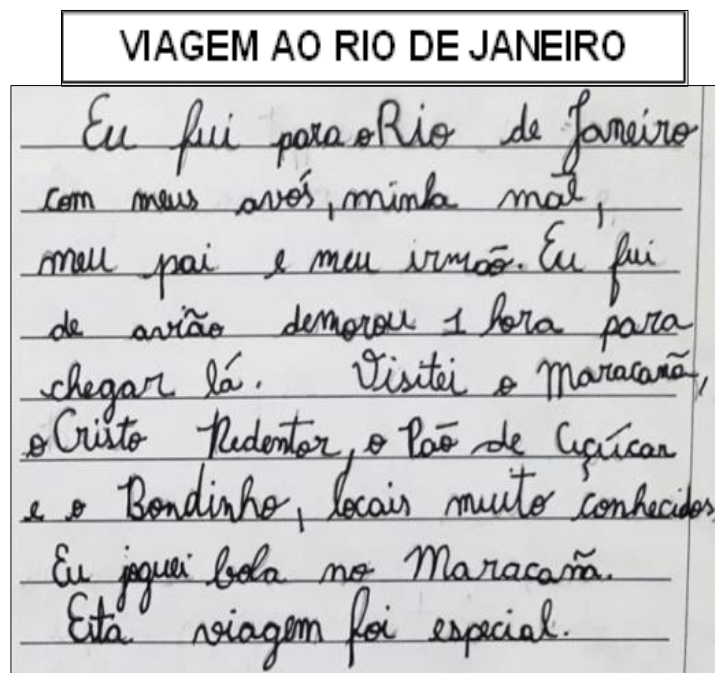 VIAGEM AO RIO DE JANEIRO
Eu fui para o Rio de Janeiro
com meus avós, minha mãe,
meu pai e meu irmão. Eu fui
de avião demorou 1 hora para
chegar lá. Visitei o Maracanã,
o Cristo Redentor, o Pão de Açúcar
e o Bondinho, locais muito conhecidos.
Eu joguei bola no Maracanã.
Esta viagem foi especial.